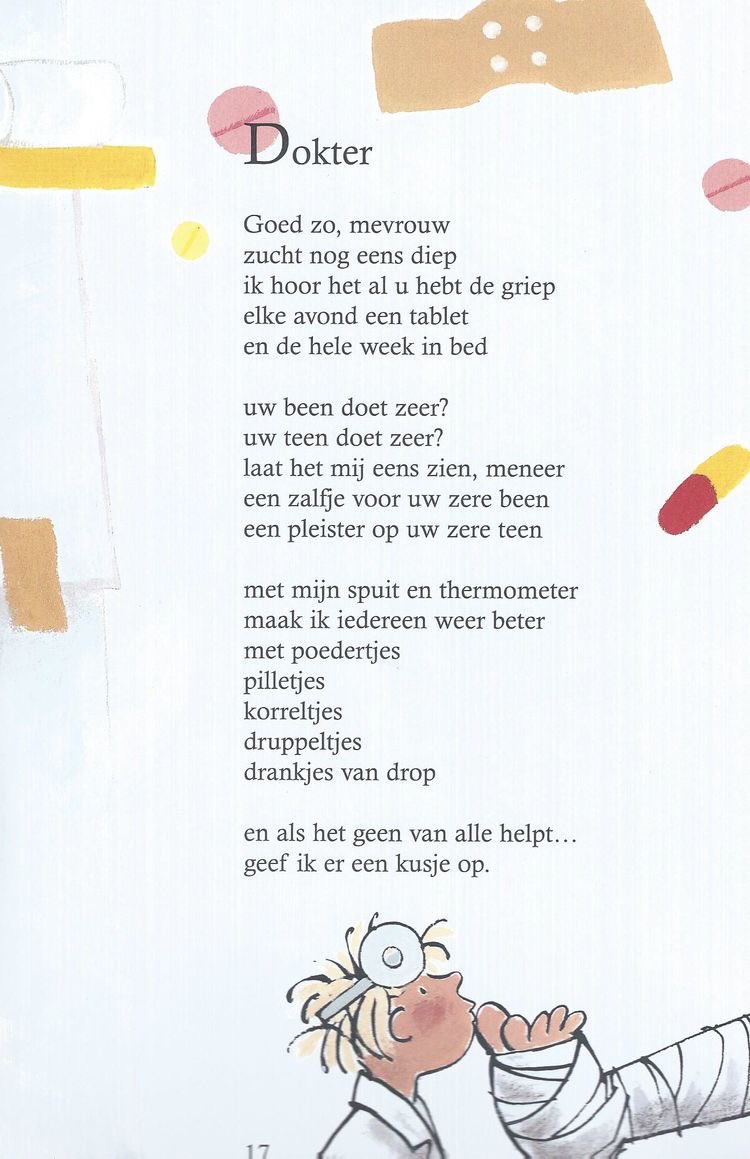 Dokter
Goed zo, mevrouw
zucht nog eens diep
ik hoor het al u hebt de griep
elke avond een tablet
en de hele week in bed
uw been doet zeer?
uw teen doet zeer?
laat het mij eens zien, meneer
een zalfje voor uw zere been
een pleister op uw zere teen
met mijn spuit en thermometer
maak ik iedereen weer beter
met poedertjes
pilletjes
korreltjes
druppeltjes
drankjes van drop
en als het geen van alle helpt...
geef ik er een kusje op.
17